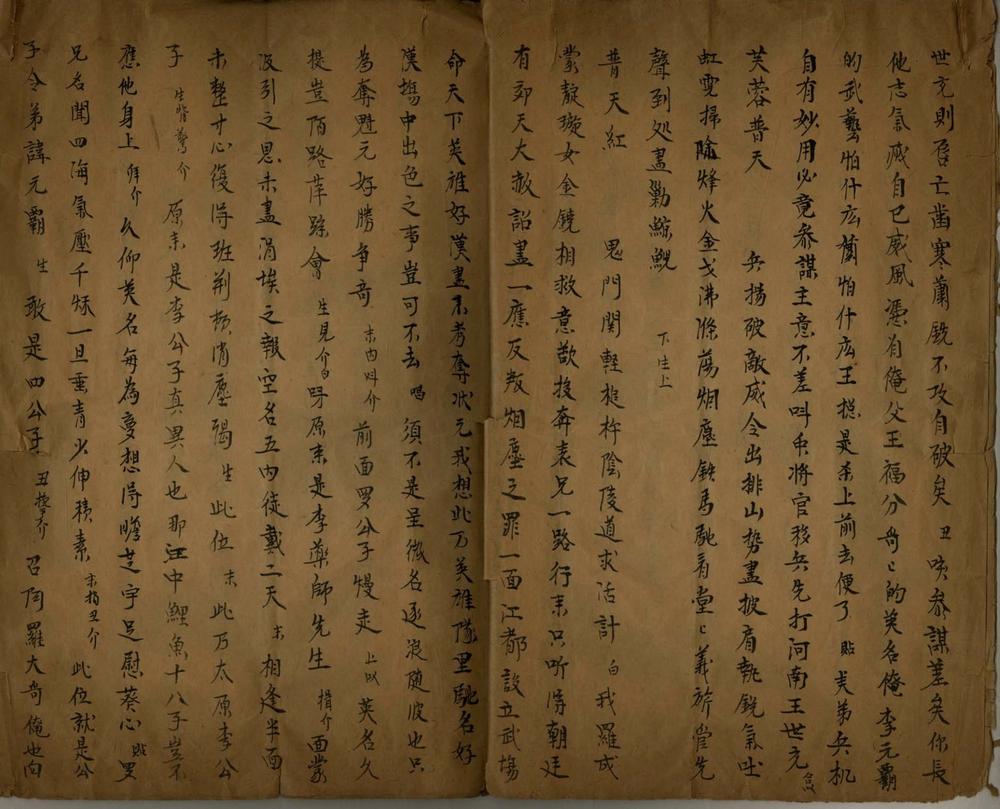 世充則唇亡齒寒蕭銑不攻自破矣 丑 咦参謀差矣你長
他志氣滅自己威風憑有俺父王福分哥〻的美名俺李元霸
的武藝怕什広蘭怕什広王 是亲上前去便了 貼 美弟兵机
自有妙用必竟参謀主意不差叫中將官移兵先打河南王世充
芙蓉普天 兵揚破敵威令出排山势盡披肩執銳氣吐
虹霓掃除烽火金戈沸滌蕩烟塵鉄馬馳看堂〻義旂管先
聲到処盡勦鲸鲵 下 生上
普天紅 鬼門関軽 陰陵道求活計 白 我羅成
蒙靛璇女金鏡相救意欲投奔表兄一路行来只听得朝廷
有郊天大赦詔盡一應反叛烟塵之罪一面江都設立武場
命天下英雄好漢盡来考奪状元我想此乃英雄隊里馳名好
漢塲中出色之事豈可不去 唱 須不是呈微名逐浪随波也只
為奪魁元好勝争奇 末内叫介 前面罗公子慢走 上 英名久
提豈陌路萍踪會 生見介白 呀原来是李藥師先生 揖介 面蒙
汲引之恩未盡涓埃之報空名五内徒戴二天 末 相逢半面
未整寸心復得班荆頓消塵 生 此位 末 此乃太原李公
子 生背驚介 原来是李公子真異人也那江中鯉魚十八子豈不
應他身上 拜介 久仰英名每為夢想得瞻芝宇足慰葵心 貼 罗
兄名聞四海氣壓千 一旦垂青少伸積素 末指丑介 此位就是公
子令弟諱元霸 生 敢是四公子 丑 介 召 羅大哥俺也向